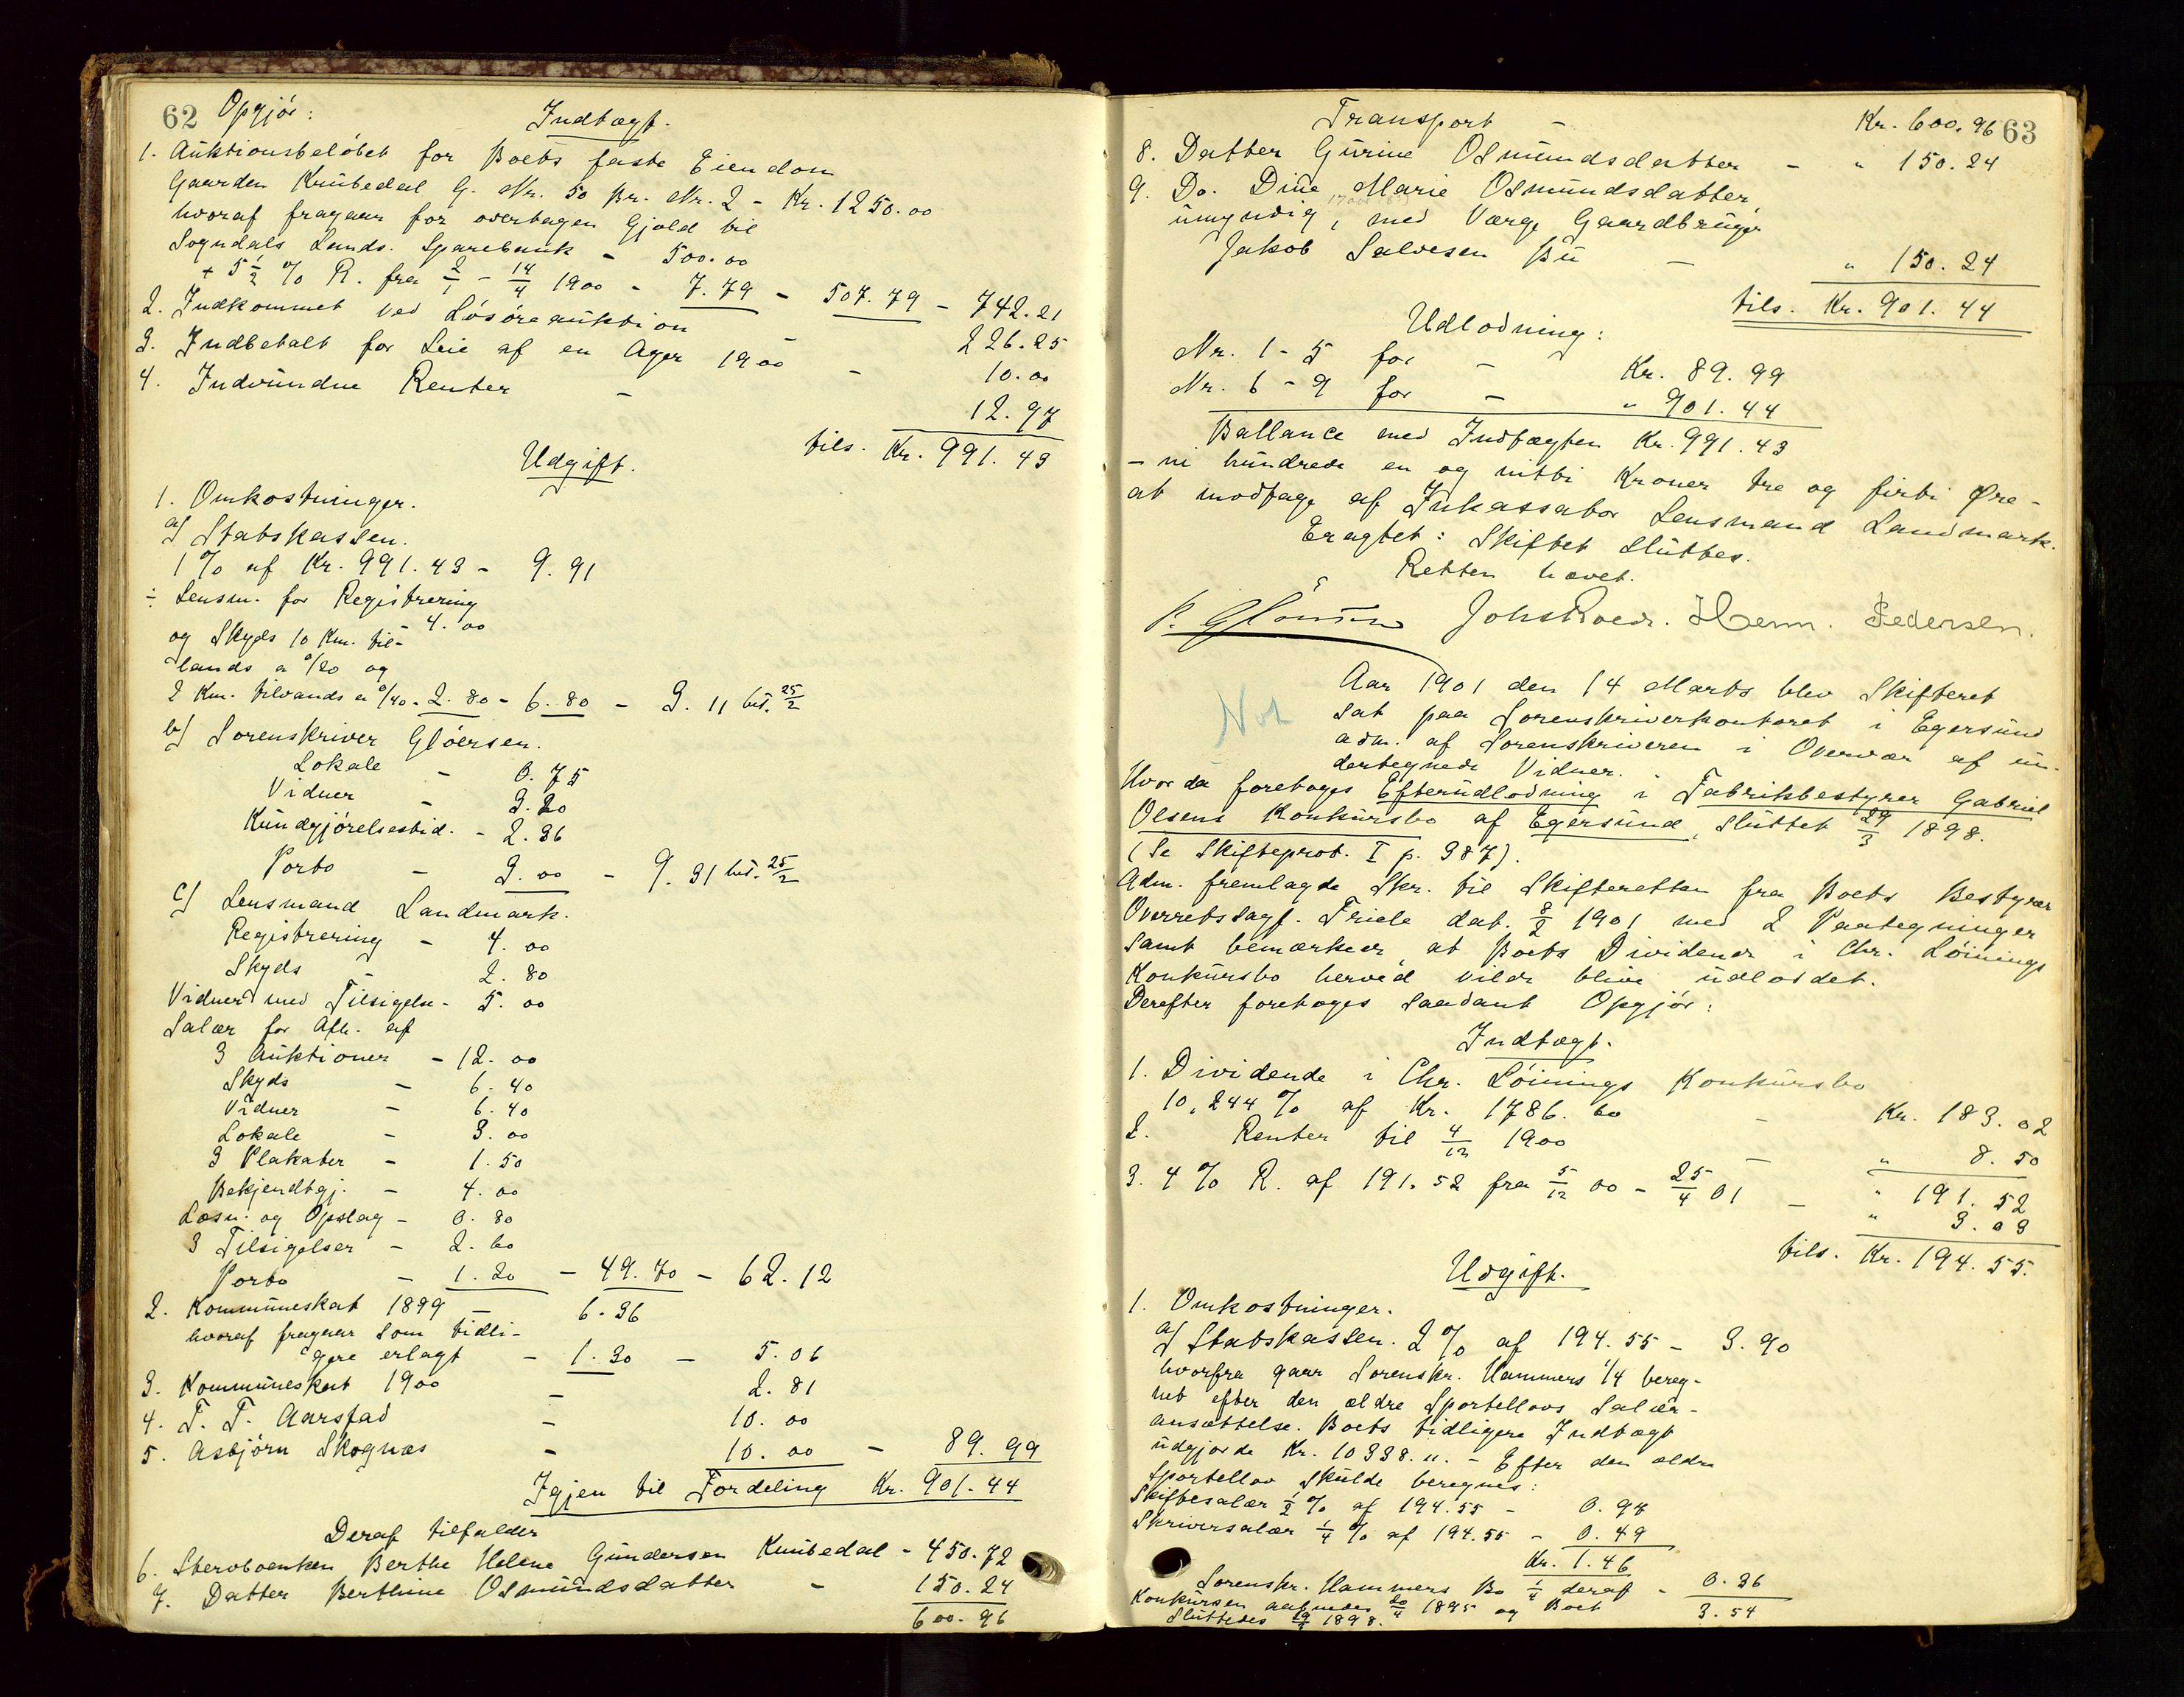 62 Opgjör:
Indtægt.
1. Auktionsbelöbet for Boets faste Eiendom
Gaarden Knubedal G. Nr. 50 Br. Nr. 2 - Kr. 1250.00
hvoraf fragaar for overtagen Gjæld til
Sogndals Lands. Sparebank - 500.00
+ 5 1/2 % R. fra 2/1 - 14/4 1900 - 7.79 - 507.79 - 742.21
2. Indkommet ved Lösöreauktion - 226.25
3. Indbetalt for Leie af en Ager 1900 - 10.00
4. Indvundne Renter - 12.97
tils. Kr. 991.43
Udgift.
1. Omkostninger.
a) Statskassen.
1 % af Kr. 991.43 - 9.91
÷ Lensm. for Registrering
- 4.00
og Skyds 10 Km. til-
lands a 0/20 og
2 Km. tilvands a 0/40 - 2.80 - 6.80 - 3.11 bet. 25/2
b) Sorenskriver Glöersen.
Lokale - 0.75
Vidner - 3.20
Kundgjörelsestid. - 2.36
Porto - 3.00 - 9.31 bet. 25/2
c) Lensmand Landmark.
Registrering - 4.00
Skyds - 2.80
Vidner med Tilsigelse - 5.00
Salær for Afh. af
3 Auktioner - 12.00
Skyds - 6.40
Vidner - 6.40
Lokale - 3.00
3 Plakater - 1.50
Bekjendtgj. - 4.00
Læsn. og Opslag - 0.80
3 Tilsigelser - 2.60
Porto - 1.20 - 49.70 - 62.12
2. Kommuneskat 1899 - 6.36
hvoraf fragaar som tidli-
gere erlagt - 1.30 - 5.06
3. Kommuneskat 1900 - 2.81
4. T. T. Aarstad - 10.00
5. Asbjörn Skognæs - 10.00 - 89.99
Igjen til Fordeling Kr. 901.44
Deraf tilfalder
6. Stervboenken Berthe Helene Gundersen Knubedal - 450.72
7. Datter Berthine Osmundsdatter - 150.24
600.96
Transport - Kr. 600.96 63
8. Datter Gurine Osmundsdatter - " 150.24
9. Do. Dine Marie Osmundsdatter,
umyndig, med Værge Gaardbruger
Jakob Salvesen Bu - " 150.24
tils. Kr. 901.44
Udlodning:
Nr. 1 - 5 for - Kr. 89.99
Nr. 6 - 9 for - " 901.44
Ballance med Indtægten Kr. 991.43
- ni hundrede en og nitti Kroner tre og firti Öre -
at modtage af Inkassator Lensmand Landmark.
Eragtet: Skiftet sluttes.
Retten hævet.
Herm. Pedersen.
Aar 1901 den 14 Marts blev Skifteret
Not
sat paa Sorenskriverkontoret i Egersund
adm. af Sorenskriveren i Overvær af un-
dertegnede Vidner.
Hvor da foretoges Efterudlodning i Fabrikbestyrer Gabriel
Olsens Konkursbo af Egersund, sluttet 29/3 1898.
(Se Skifteprot. I p. 387).
Adm. fremlagde Skr. til Skifteretten fra Boets Bestyrer
Overretssagf. Friele dat. 8/2 1901 med 2 Paategninger
samt bemærker, at Boets Dividende i Chr. Löinings
Konkursbo herved vilde blive udloddet.
Derefter foretoges saadant Opgjör:
Indtægt.
1. Dividende i Chr. Löinings Konkursbo
10,244 % af Kr. 1786.60 - Kr. 183.02
2. Renter til 4/12 1900 - " 8.50
" 191.52
3. 4 % R. af 191.52 fra 5/12 00 - 25/4 01 - " 3.03
tils. Kr. 194.55.
Udgift.
1. Omkostninger.
a) Statskassen. 2 % af 194.55 - 3.90
hvorfra gaar Sorenskr. Hammers 1/4 bereg-
net efter den ældre Sportellovs Salær-
ansættelse. Boets tidligere Indtægt
udgjorde Kr. 10338. ". - Efter den ældre
Sportellov skulde beregnes:
Skiftesalær 1/2 % af 194.55 - 0.97
Skriversalær 1/4 % af 194.55 - 0.49
Kr. 1.46
Sorenskr. Hammers Bo 1/4 deraf - 0.36
Konkursen aabnedes 20/4 1895 og Boet 3.54
sluttedes 29/3 1898.